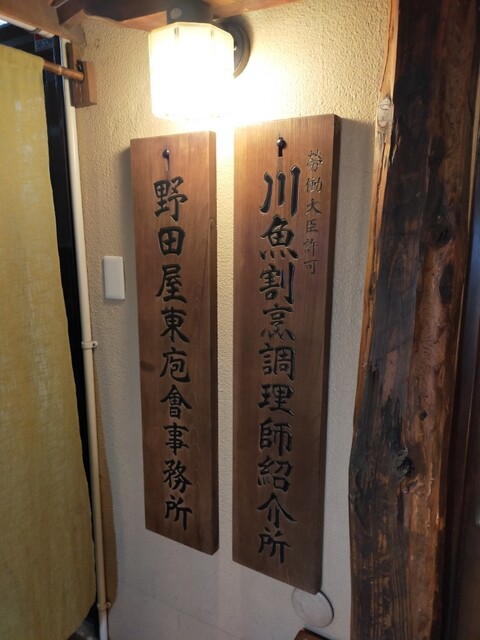 勞働大臣許可
川魚割烹調理師紹介所
野田屋東庖會事務所